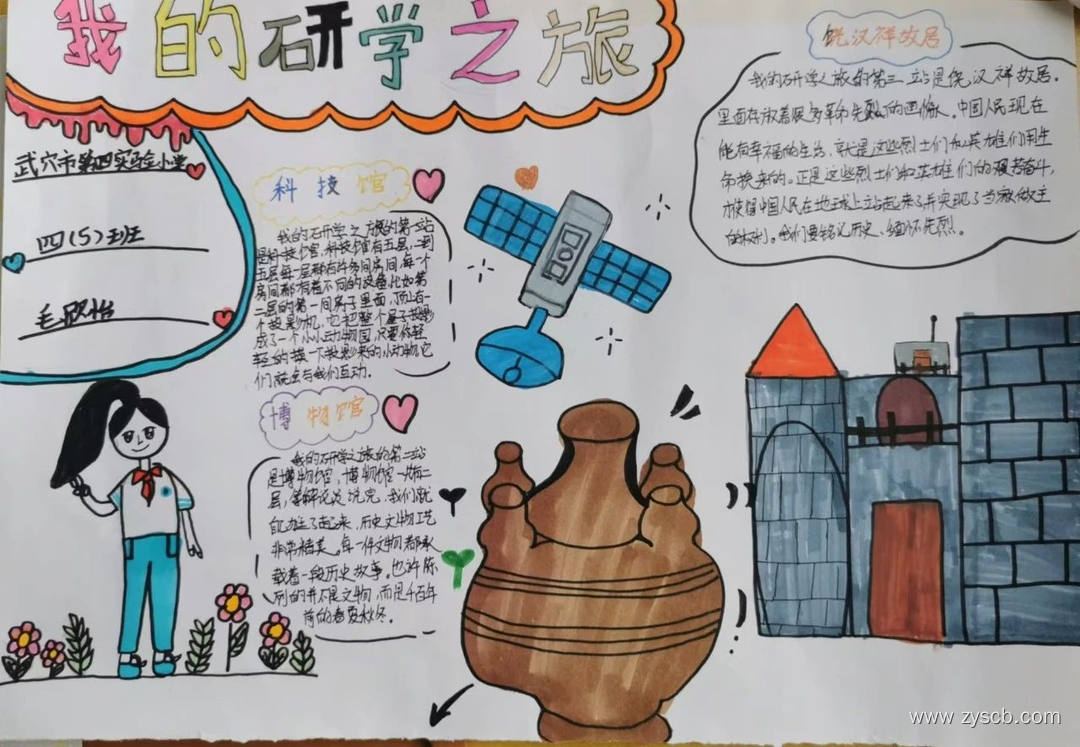 我的研学之旅
武穴市第四实验小学
四(5)班
毛欣怡
科技馆
我的研学之旅的第一站
是科技馆,科技馆有五层,二到
五层每一层都有许多间房间,每个
房间都有着不同的设备,比如第
二层的第一间房子里面,顶上有一
个投影机,它把整个屋子投影
成了一个小小动物园,只要你轻
轻的摸一下投影来的小动物它
们就会与我们互动。
博物馆
我的研学之旅的第二站
是博物馆,博物馆一共有二
层,等解说员说完,我们就
自动走了起来,历史文物工艺
非常精美。每一件文物都承
载着一段历史故事。也许陈
列的并不是文物,而是千百年
前的春夏秋冬。
饶汉祥故居
我的研学之旅的第三站是饶汉祥故居。
里面存放着很多革命先烈的画像。中国人民现在
能有幸福的生活,就是这些烈士们和英雄们用生
命换来的。正是这些烈士们和英雄们的艰苦奋斗,
才使得中国人民在地球上站起来了并实现了当家做主
的权利。我们要铭记历史、缅怀先烈。
www.zyscb.com